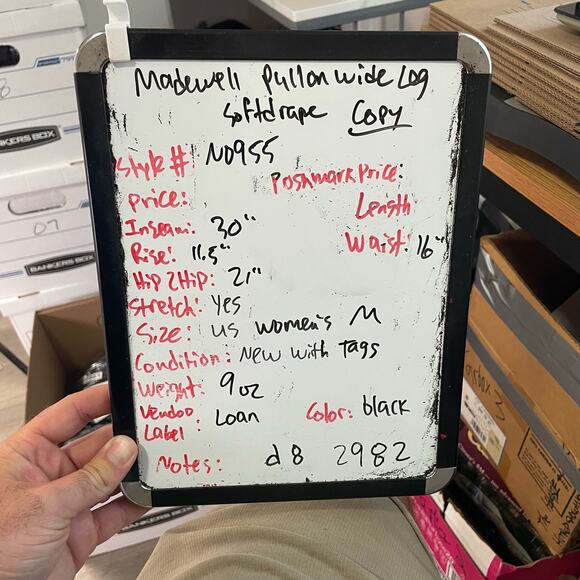 Madewell Pullon wide Leg
softdrape Copy
Style #: N0955
Poshmark Price:
Price:
Length
Inseam: 30"
Waist: 16"
Rise: 11.5"
Hip 2 Hip: 21"
Stretch: Yes
Size: US Women's M
Condition: New with Tags
Weight: 9 oz
Vendoo
Label: Loan
Color: black
Notes: d8 2982
BANKERS BOX
07
BANKERS BOX
BANKERS BOX